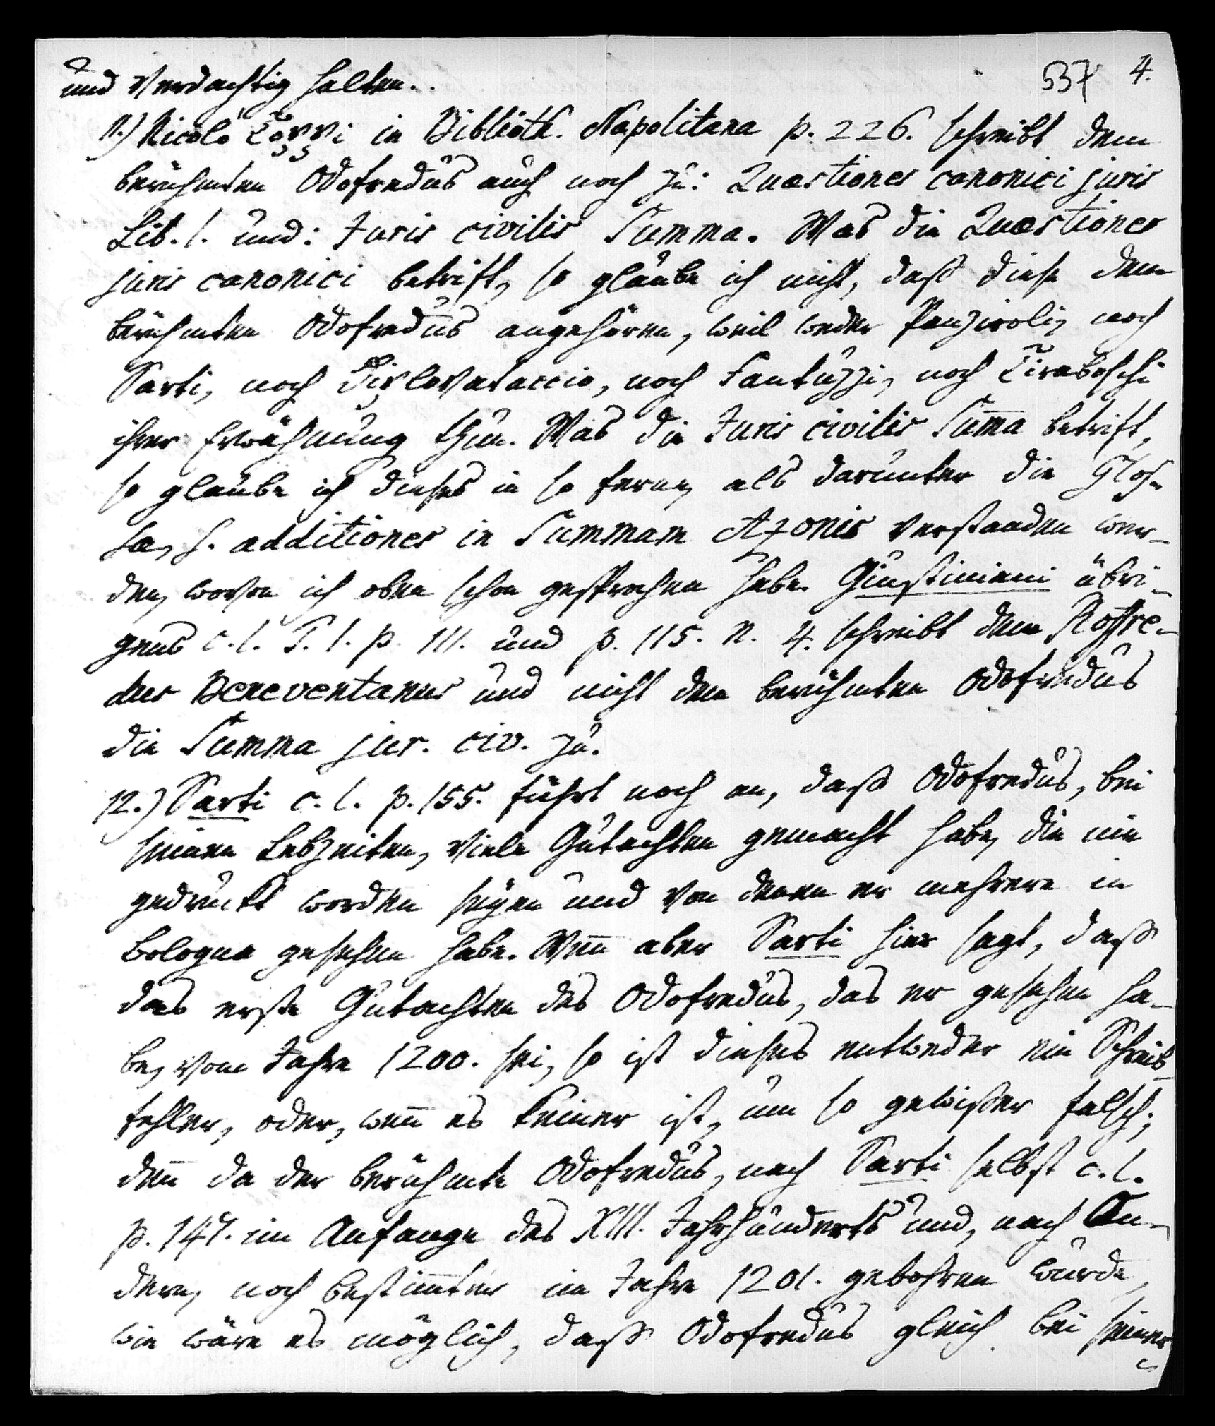 537 4.
und verdachtig halten..
11.) Nicolò Toppi in Biblioth. Napolitana p. 226. schreibt dem
berühmten Odofredus auch noch zu: Quæstiones canonici juris
Lib. 1. und: Juris civilis Summa. Was die Quæstiones
juris canonici betrift, so glaube ich nicht, daß diese dem
berühmten Odofredus angehören, weil weder Panziroli, noch
Sarti, noch Dixlovataccio, noch Fantuzzi, noch Tiraboschi
ihrer Erwähnung thun. Was die Juris civilis Sum̄a betrift,
so glaube ich dieses in so ferne, als darunter die Glos-
sa, s. additiones in Summam Azonis verstanden wer-
den, wovon ich oben schon gesprochen habe. Giustiniani übri-
gens c. l. T. 1. p. 111. und p. 115. n. 4. schreibt dem Roffre-
dus Beneventanus und nicht dem berühmten Odofredus
die Summa jur. civ. zu.
12.) Sarti c. l. p. 155. führt noch an, daß Odofredus, bei
seinen Lebzeiten, viele Gutachten gemacht habe, die nie
gedruckt worden seyen und von denen er mehrere in
Bologna gesehen habe. Wen̄ aber Sarti hier sagt, daß
das erste Gutachten des Odofredus, das er gesehen ha-
be, vom Jahre 1200. sei, so ist dieses entweder ein Schreib-
fehler, oder, wen̄ es keiner ist, um so gewißer falsch;
den̄ da der berühmte Odofredus, nach Sarti selbst c. l.
p. 147. im Anfange des XIII. Jahrhunderts und, nach An-
dern, noch bestim̄ter im Jahre 1201. gebohren wurde,
wie wäre es möglich, daß Odofredus gleich bei seiner